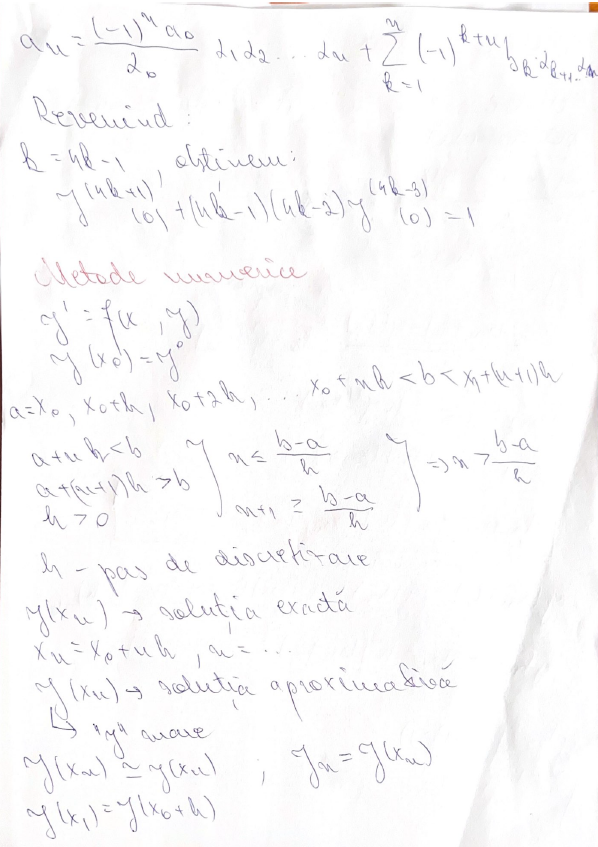 a_n = \frac{(-1)^n a_0}{α_0} α_1 α_2 ... α_n + \sum_{k=1}^{n} (-1)^{k+n} b_k · α_{k+1} ... α_n
Revenind :
k = 4k-1, obținem:
y^{(4k+1)}(0) + (4k-1)(4k-2) y^{(4k-3)}(0) = 1
Metode numerice
y' = f(x, y)
y(x_0) = y^0
a = x_0, x_0+h, x_0+2h, ... x_0+nh < b < x_n+(n+1)h
a+nh < b
a+(n+1)h > b
h > 0
} n ≤ \frac{b-a}{h}
n+1 ≥ \frac{b-a}{h}
} => n > \frac{b-a}{h}
h - pas de discretizare
y(x_n) → soluția exactă
x_n = x_0+nh, n = ...
Y(x_n) → soluția aproximativă
↳ "y" mare
Y(x_n) ≅ y(x_n) ; Y_n = Y(x_n)
y(x_1) = y(x_0+h)